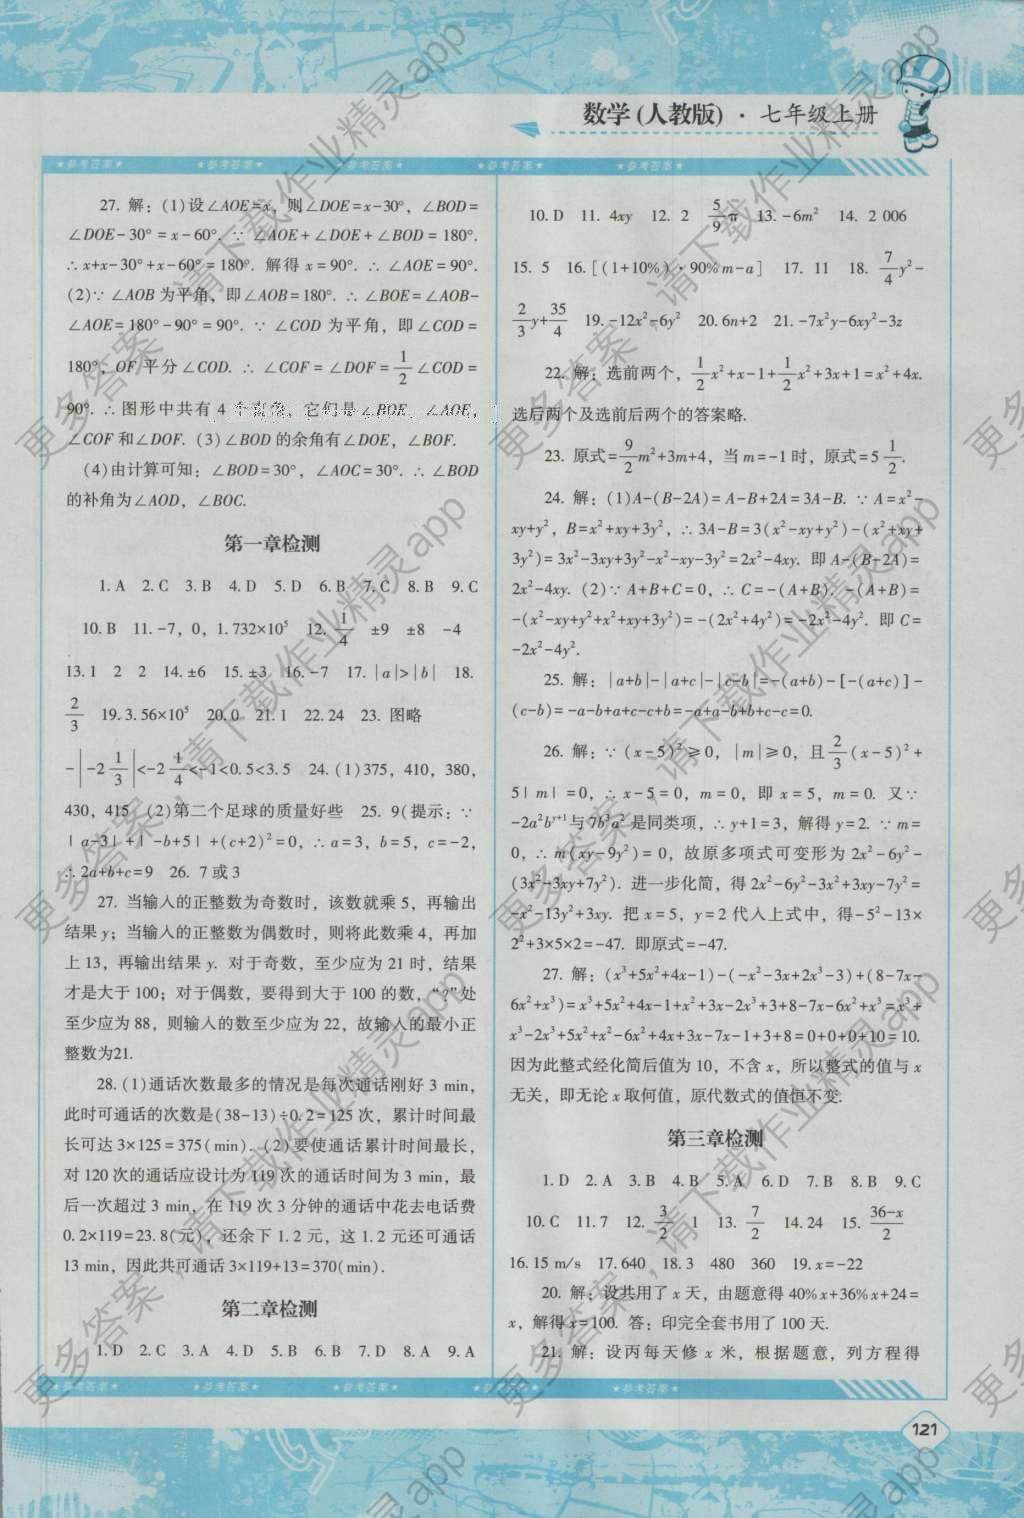 数学(人教版)·七年级上册
★参考答案★ ★参考答案★ ★参考答案★ ★参考答案★ ★参考答案★
27. 解：(1)设∠AOE=x，则∠DOE=x-30°，∠BOD=
∠DOE-30°=x-60°. ∵ ∠AOE+∠DOE+∠BOD=180°.
∴x+x-30°+x-60°=180°. 解得x=90°. ∴ ∠AOE=90°.
(2)∵ ∠AOB为平角，即∠AOB=180°. ∴ ∠BOE=∠AOB-
∠AOE=180°-90°=90°. ∵ ∠COD 为平角，即∠COD=
180°，OF 平分∠COD. ∴ ∠COF=∠DOF=1/2∠COD=
90°. ∴ 图形中共有 4 个直角，它们是∠BOE，∠AOE，
∠COF和∠DOF. (3)∠BOD的余角有∠DOE，∠BOF.
(4)由计算可知：∠BOD=30°，∠AOC=30°. ∴ ∠BOD
的补角为∠AOD，∠BOC.
第一章检测
1. A 2. C 3. B 4. D 5. D 6. B 7. C 8. B 9. C
10. B 11. -7，0，1.732×10⁵ 12. 1/4 ±9 ±8 -4
13. 1 2 2 14. ±6 15. ±3 16. -7 17. |a|>|b| 18.
2/3 19. 3.56×10⁵ 20. 0 21. 1 22. 24 23. 图略
-|-2 1/3|<-2 1/4<-1<0.5<3.5 24. (1)375，410，380，
430，415 (2)第二个足球的质量好些 25. 9(提示：∵
|a-3|+|-b+5|+(c+2)²=0，∴a=3，b=5，c=-2，
∴2a+b+c=9 26. 7或3
27. 当输入的正整数为奇数时，该数就乘 5，再输出
结果 y；当输入的正整数为偶数时，则将此数乘 4，再加
上 13，再输出结果 y. 对于奇数，至少应为 21 时，结果
才是大于 100；对于偶数，要得到大于 100 的数，“?”处
至少应为 88，则输入的数至少应为 22，故输入的最小正
整数为21.
28. (1)通话次数最多的情况是每次通话刚好 3 min，
此时可通话的次数是(38-13)÷0.2=125 次，累计时间最
长可达 3×125=375(min). (2)要使通话累计时间最长，
对 120 次的通话应设计为 119 次的通话时间为 3 min，最
后一次超过 3 min，在 119 次 3 分钟的通话中花去电话费
0.2×119=23.8(元)，还余下 1.2 元，这 1.2 元还可通话
13 min，因此共可通话 3×119+13=370(min).
第二章检测
1. D 2. C 3. A 4. D 5. B 6. B 7. D 8. A 9. A
10. D 11. 4xy 12. 2 5/9π 13. -6m² 14. 2 006
15. 5 16. [(1+10%)·90%m-a] 17. 11 18. 7/4y²-
2/3y+35/4 19. -12x²-6y² 20. 6n+2 21. -7x²y-6xy²-3z
22. 解：选前两个，1/2x²+x-1+1/2x²+3x+1=x²+4x.
选后两个及选前后两个的答案略.
23. 原式=9/2m²+3m+4，当m=-1时，原式=5 1/2.
24. 解：(1)A-(B-2A)=A-B+2A=3A-B. ∵ A=x²-
xy+y²，B=x²+xy+3y²，∴ 3A-B=3(x²-xy+y²)-(x²+xy+
3y²)=3x²-3xy+3y²-x²-xy-3y²=2x²-4xy. 即 A-(B-2A)=
2x²-4xy. (2)∵ A+B+C=0，∴ C=-(A+B). -(A+B)=
-(x²-xy+y²+x²+xy+3y²)=-(2x²+4y²)=-2x²-4y². 即 C=
-2x²-4y².
25. 解：|a+b|-|a+c|-|c-b|=-(a+b)-[-(a+c)]-
(c-b)=-a-b+a+c-c+b=-a+a-b+b+c-c=0.
26. 解：∵ (x-5)²≥0，|m|≥0，且2/3(x-5)²+
5|m|=0，∴ x-5=0，m=0，即 x=5，m=0. 又∵
-2a²bʸ⁺¹与7b³a²是同类项，∴ y+1=3，解得y=2. ∵ m=
0，∴ m(xy-9y²)=0，故原多项式可变形为 2x²-6y²-
(3x²-3xy+7y²). 进一步化简，得2x²-6y²-3x²+3xy-7y²=
-x²-13y²+3xy. 把 x=5，y=2 代入上式中，得-5²-13×
2²+3×5×2=-47. 即原式=-47.
27. 解：(x³+5x²+4x-1)-(-x²-3x+2x³-3)+(8-7x-
6x²+x³)=x³+5x²+4x-1+x²+3x-2x³+3+8-7x-6x²+x³=x³+
x³-2x³+5x²+x²-6x²+4x+3x-7x-1+3+8=0+0+0+10=10.
因为此整式经化简后值为 10，不含 x，所以整式的值与 x
无关，即无论 x 取何值，原代数式的值恒不变.
第三章检测
1. D 2. A 3. B 4. B 5. A 6. D 7. B 8. B 9. C
10. C 11. 7 12. 3/2 1 13. 7/2 14. 24 15. (36-x)/2
16. 15 m/s 17. 640 18. 3 480 360 19. x=-22
20. 解：设共用了 x 天，由题意得 40%x+36%x+24=
x，解得x=100. 答：印完全套书用了 100 天.
21. 解：设丙每天修 x 米，根据题意，列方程得
★参考答案★ ★参考答案★ ★参考答案★ ★参考答案★ ★参考答案★
121
更多答案，请下载作业精灵app
更多答案，请下载作业精灵app
更多答案，请下载作业精灵app
更多答案，请下载作业精灵app